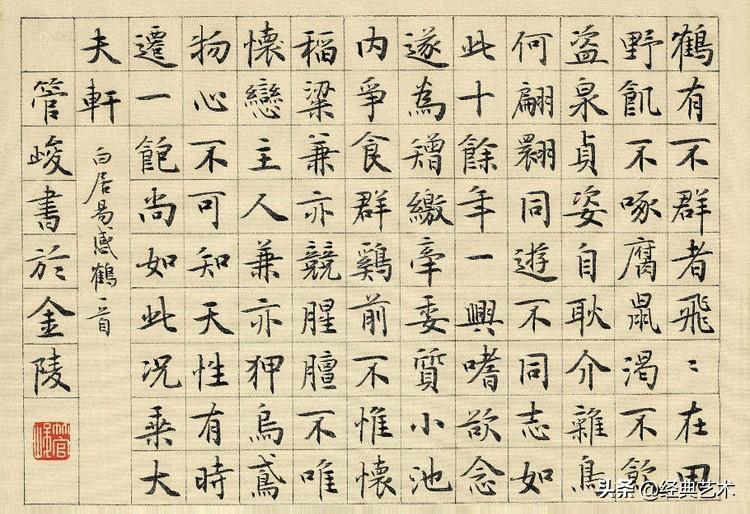 鶴有不群者飛〻在田
野飢不啄腐鼠渴不飲
盜泉貞姿自耿介雜鳥
何翩翾同遊不同志如
此十餘年一興嗜欲念
遂為矰繳牽委質小池
內爭食群鷄前不惟懷
稻粱兼亦競腥膻不唯
懷戀主人兼亦狎烏鳶
物心不可知天性有時
遷一飽尚如此况乗大
夫軒
白居易感鶴一首
管峻書於金陵
管峻
头条 @经典艺术